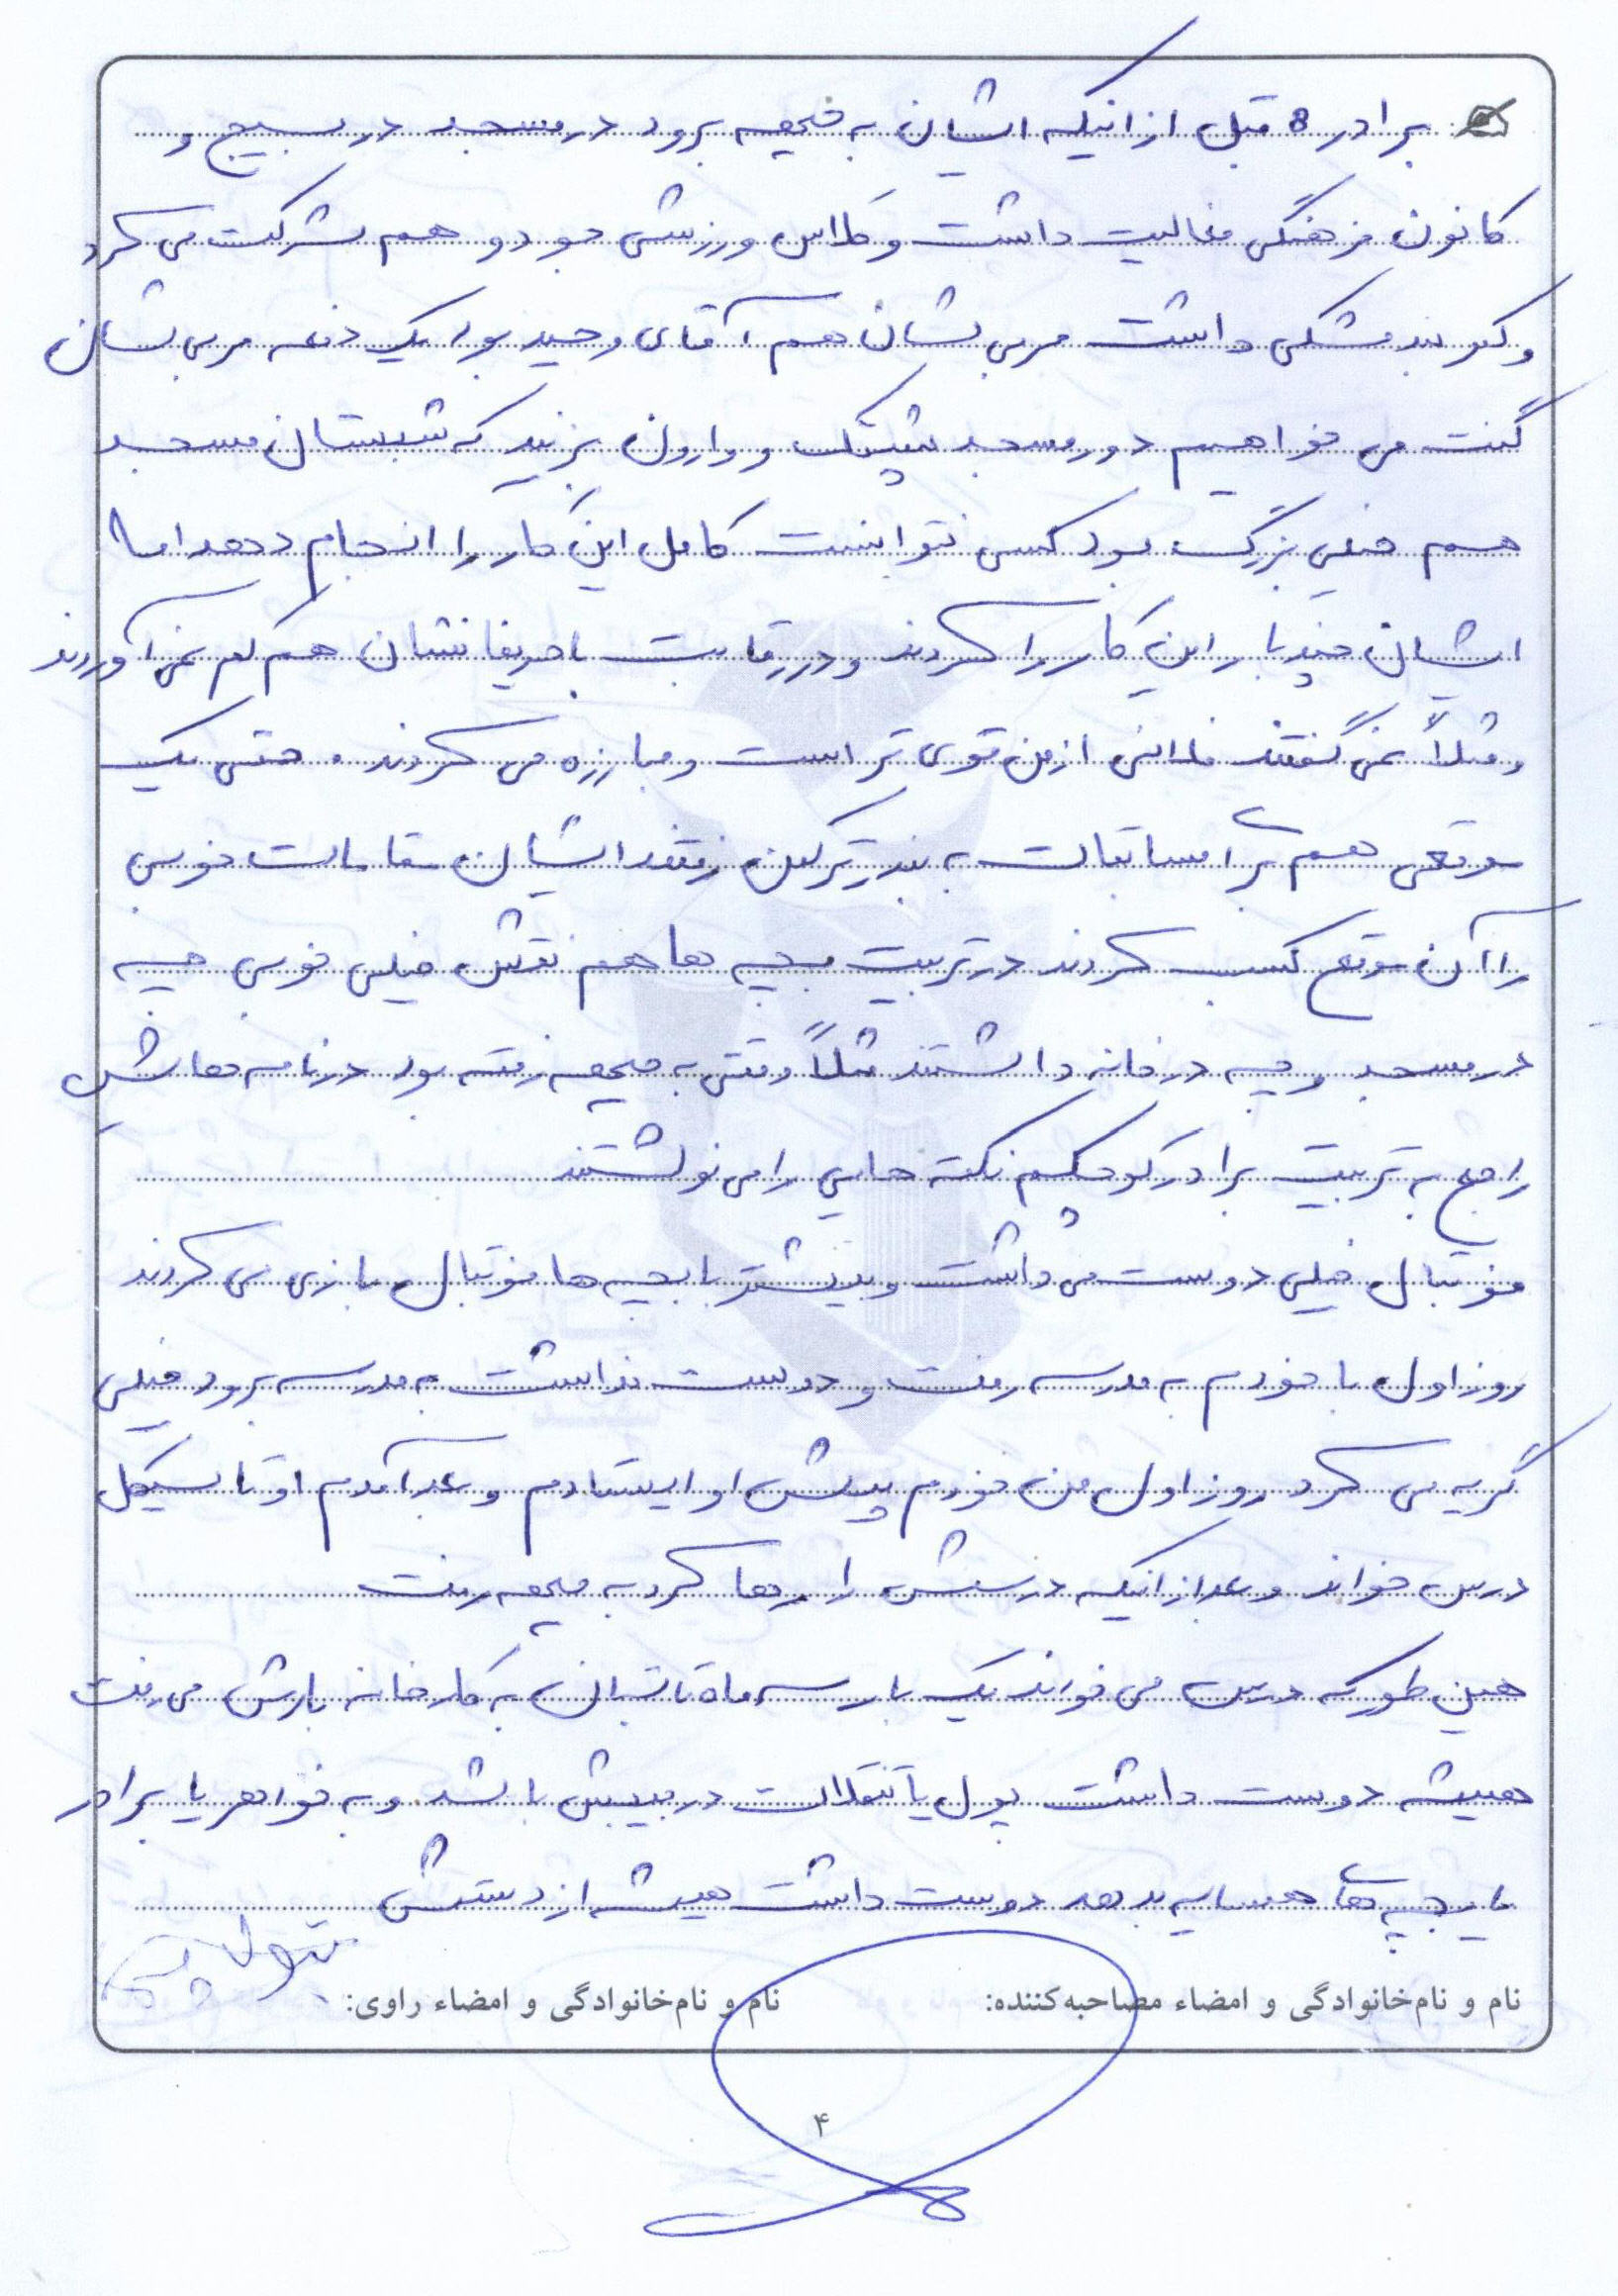 برادر: قبل از اینکه ایشان به جبهه برود در مسجد در بسیج و
کانون فرهنگی فعالیت داشت و کلاس ورزشی جودو هم شرکت می کرد
و کمربند مشکی داشت مربی شان هم آقای وحید بود یک دفعه مربی شان
گفت می خواهیم دور مسجد پشتک و وارون بزنید که شبستان مسجد
هم خیلی بزرگ بود کسی نتوانست کامل این کار را انجام دهد اما
ایشان چند بار این کار را کردند و در رقابت با حریفانشان هم کم نمی آوردند
و مثلاً نمی گفتند فلانی از من قوی تر است و مبارزه می کردند. حتی یک
موقعی هم برای مسابقات به بندر ترکمن رفتند ایشان مقامات خوبی
را آن موقع کسب کردند در تربیت بچه ها هم نقش خیلی خوبی چه
در مسجد و چه در خانه داشتند مثلاً وقتی به جبهه رفته بود در نامه هایش
راجع به تربیت برادر کوچکم نکته هایی را می نوشتند
فوتبال خیلی دوست می داشت و بیشتر با بچه ها فوتبال بازی می کردند
روز اول با خودم به مدرسه رفت و دوست نداشت به مدرسه برود خیلی
گریه می کرد روز اول من خودم پیش او ایستادم و بعد آمدم او تا سیکل
درس خواند و بعد از اینکه درسش را رها کرد به جبهه رفت
همین طور که درس می خواند یک بار سه ماه تابستان به کارخانه بارش می رفت
همیشه دوست داشت پول یا تنقلات در جیبش باشد و به خواهر یا برادر
یا بچه های همسایه بدهد دوست داشت همیشه از دستش
نام و نام‌خانوادگی و امضاء مصاحبه‌کننده: نام و نام‌خانوادگی و امضاء راوی:
۴